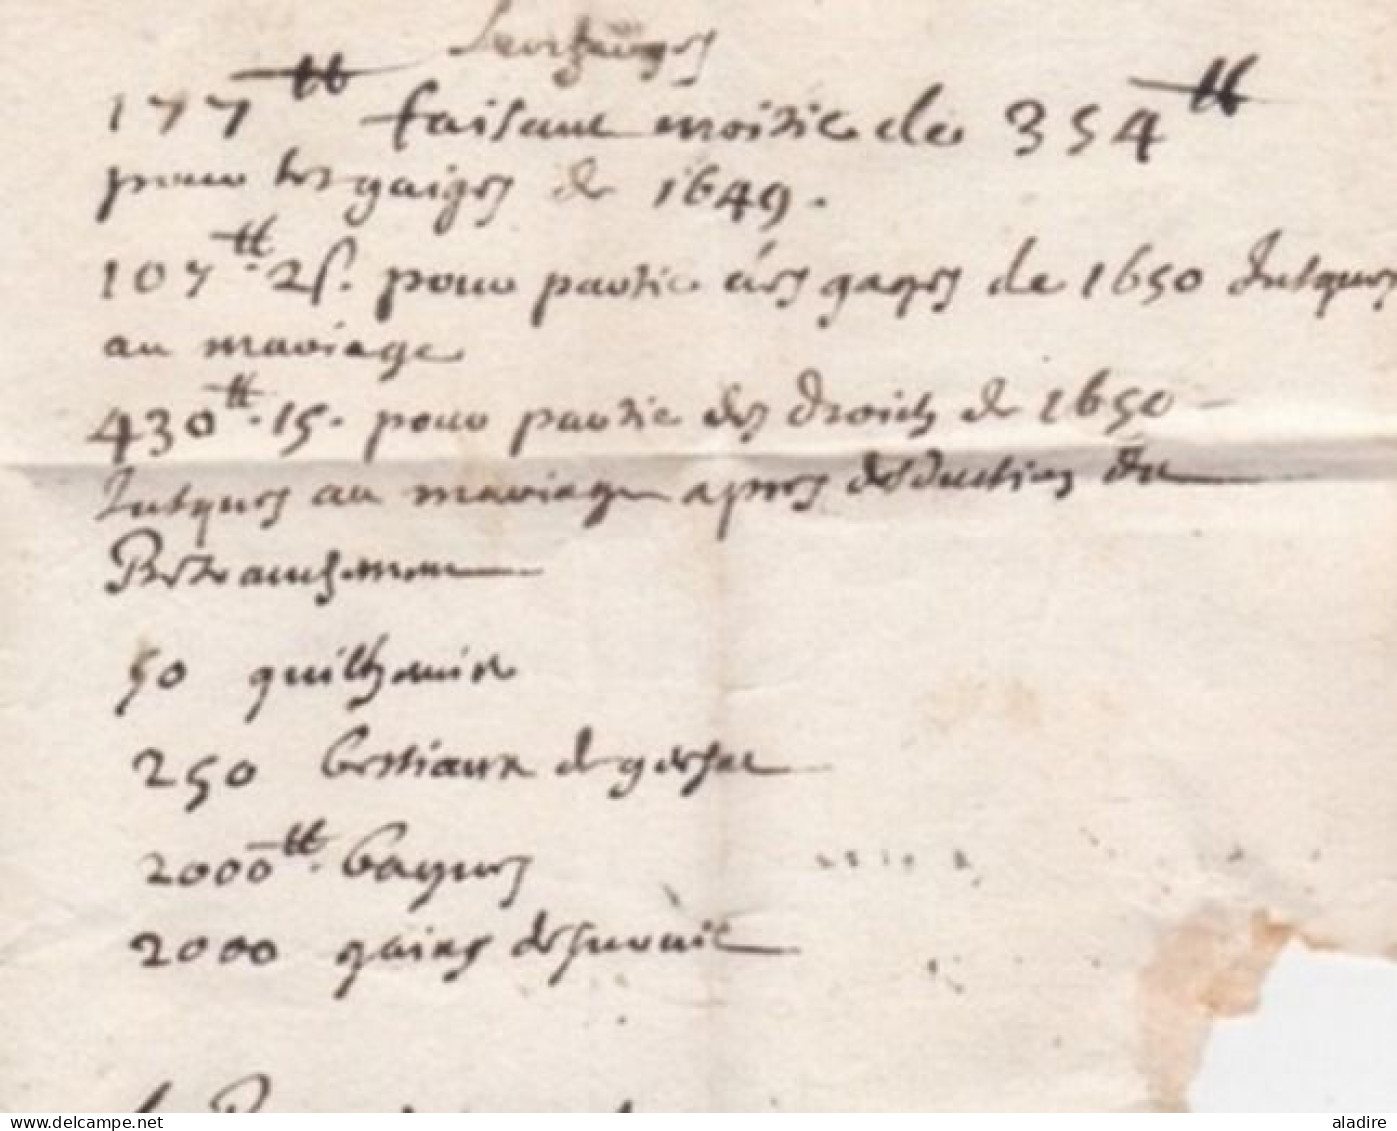 177 lt faisant moitie de 354 lt
pour les gaiges de 1649.
107 lt. 2 s. pour partie des gages de 1650 Jusques
au mariage
430 lt. 15. pour partie des droicts de 1650
Jusques au mariage apres desduction du
Retranchement
50
250 bestiaux de
2000 lt. bagues
2000 gains de survie
aladire